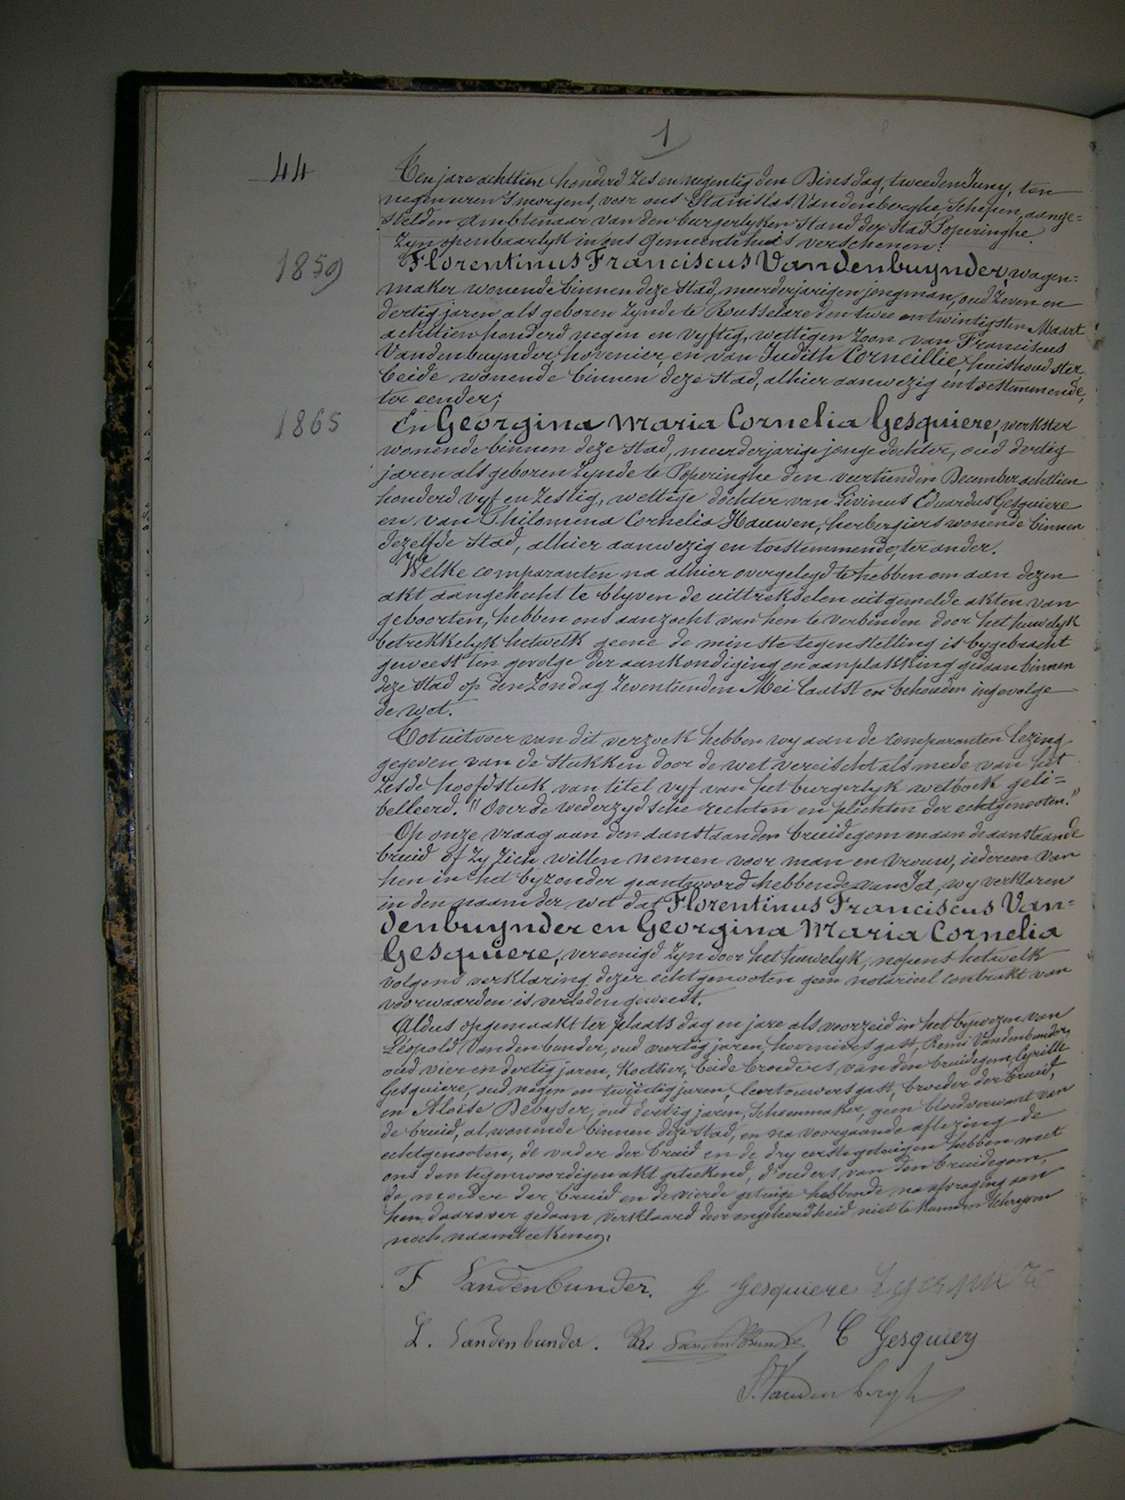 1
44
Ten jare achttien honderd zes en negentig den Dinsdag, tweeden Juny, ten
negen uren 's morgens, voor ons Stanislas Vandenberghe, Schepen, aange-
stelden Ambtenaar van den burgerlyken Stand der Stad Poperinghe
zyn openbaarlyk in ons Gemeentehuis verschenen:
1859
Florentinus Franciscus Vandenbuynder, wagen-
maker wonende binnen deze Stad, meerderjarigen jongman, oud zeven en
dertig jaren als geboren zynde te Rousselare den twee en twintigsten Maart
achttien honderd negen en vyftig, wettigen Zoon van Franciscus
Vandenbuynder, hovenier, en van Judith Corneillie, huishoudster,
beide wonende binnen deze Stad, alhier aanwezig en toestemmende,
ter eender;
1865
En Georgina Maria Cornelia Gesquiere, werkster
wonende binnen deze Stad, meerderjarige jonge dochter, oud dertig
jaren als geboren zynde te Poperinghe den veertienden December achttien
honderd vyf en zestig, wettige dochter van Livinus Eduardus Gesquiere
en van Philomena Cornelia Hauwen, herbergiers wonende binnen
dezelfde Stad, alhier aanwezig en toestemmende, ter ander.
Welke comparanten na alhier overgelegd te hebben om aan dezen
akt aangehecht te blyven de uittrekselen uit gemelde akten van
geboorten, hebben ons aanzocht van hen te verbinden door het huwelyk
betrekkelyk hetwelk geene de minste tegenstelling is bygebracht
geweest ten gevolge der aankondiging en aanplakking gedaan binnen
deze Stad op den Zondag Zeventienden Mei laatst en behouden ingevolge
de wet.
Tot uitvoer van dit verzoek hebben wy aan de comparanten lezing
gegeven van de Stukken door de wet vereischt als mede van het
zesde hoofdstuk van titel vyf van het burgerlyk wetboek geli-
belleerd. "Over de wederzydsche rechten en plichten der echtgenooten."
Op onze vraag aan den aanstaanden bruidegom en aan de aanstaande
bruid of zy zich willen nemen voor man en vrouw, iedereen van
hen in het byzonder geantwoord hebbende van Ja, wy verklaren
in den naam der wet dat Florentinus Franciscus Van-
denbuynder en Georgina Maria Cornelia
Gesquiere, vereenigd zyn door het huwelyk, nopens hetwelk
volgens verklaring dezer echtgenooten geen notarieel contrakt van
voorwaarden is verleden geweest.
Aldus opgemaakt ter plaats dag en jare als voorzeid in het bywezen van
Léopold Vandenbunder, oud veertig jaren, hoveniersgast, Remi Vandenbunder,
oud vier en dertig jaren, koetsier, beide broeders van den bruidegom, Cyrille
Gesquiere, oud negen en twintig jaren, leertouwersgast, broeder der bruid,
en Aloïse Debyser, oud dertig jaren, Schoenmaker, geen bloedverwant van
de bruid, al wonende binnen deze stad, en na voorgaande aflezing de
echtgenooten, de vader der bruid en de dry eerste getuigen hebben met
ons den tegenwoordigen akt geteekend, d'ouders van den bruidegom,
de moeder der bruid en de vierde getuige hebbende na afvraging aan
hen daarover gedaan verklaard door ongeleerdheid niet te kunnen schryven
noch naamteekenen.
F Vandenbunder. G Gesquiere
L. Vandenbunder. C Gesquiery
S. Vandenbergh